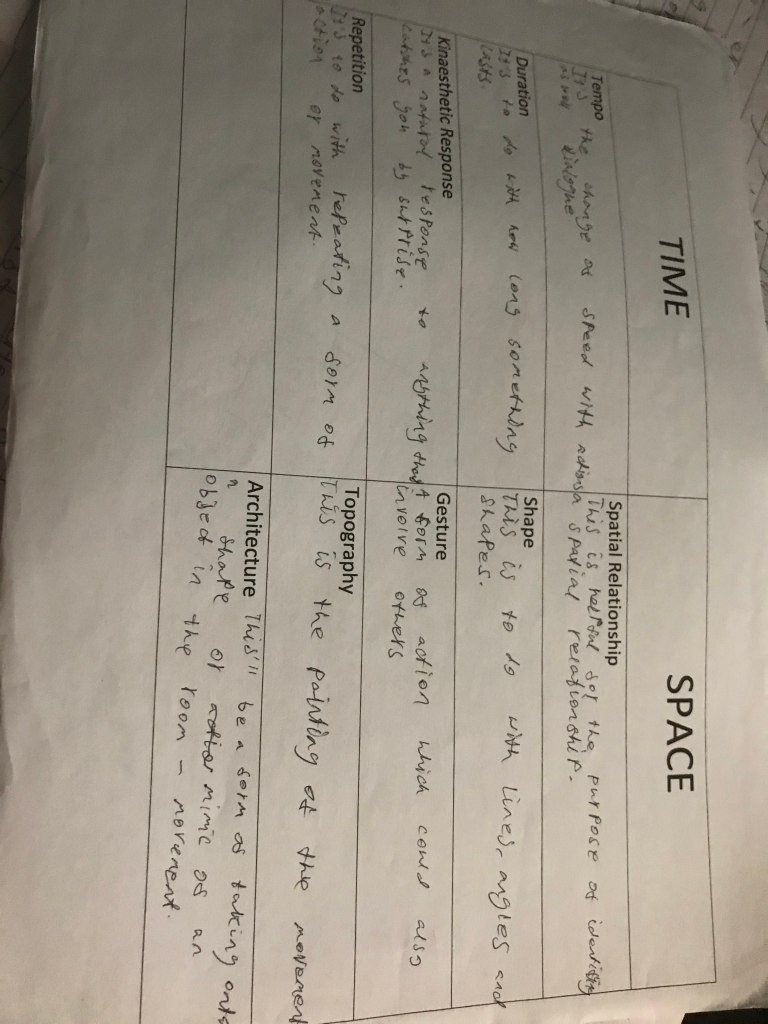 TIME
SPACE
Tempo
It's the change of speed with actions
as well dialogue
Spatial Relationship
This is helpful for the purpose of identifying
a spatial relationship.
Duration
It's to do with how long something
lasts.
Shape
This is to do with lines, angles and
shapes.
Kinaesthetic Response
It's a natural response to anything that
catches you by surprise.
Gesture
A form of action which could also
involve others
Repetition
It's to do with repeating a form of
action or movement.
Topography
This is the painting of the movement
Architecture This'll be a form of taking onto
a shape or mimic of an
object in the room - movement.